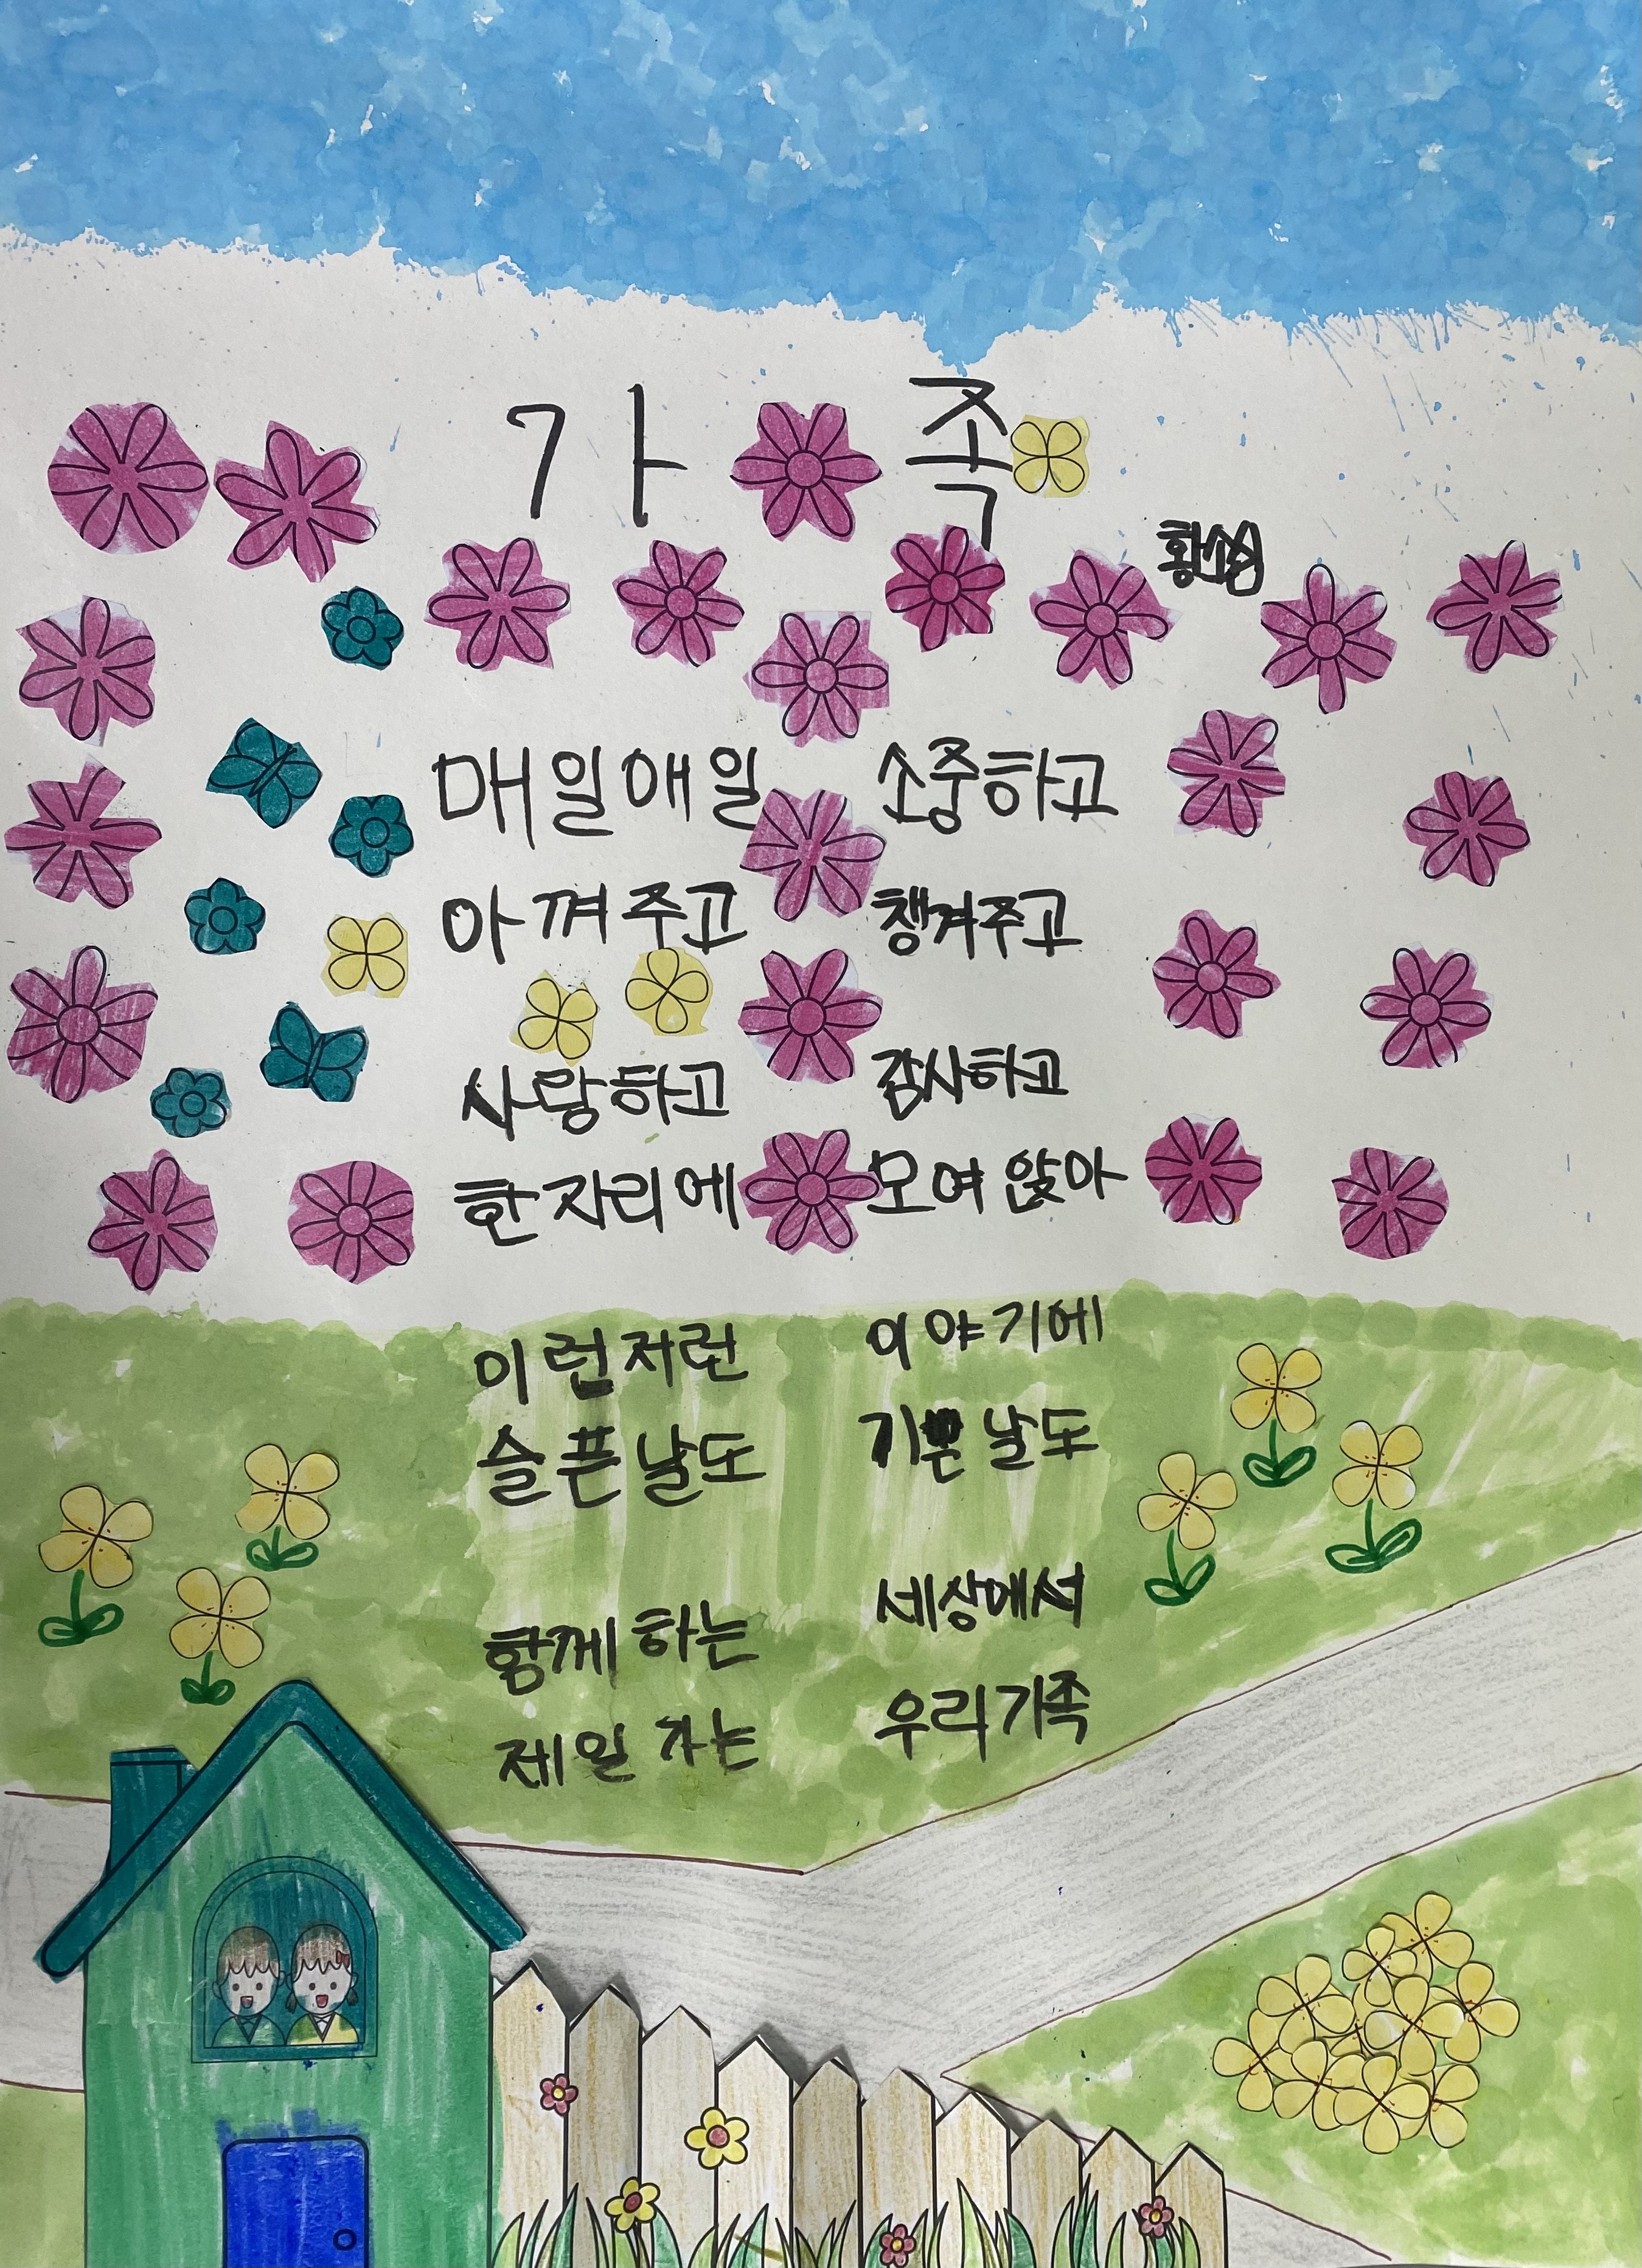 가족
매일애일 소중하고
아껴주고 챙겨주고
사랑하고 감사하고
한자리에 모여 앉아
이런저런 이야기에
슬픈날도 기쁜 날도
함께 하는 세상에서
제일 가는 우리가족